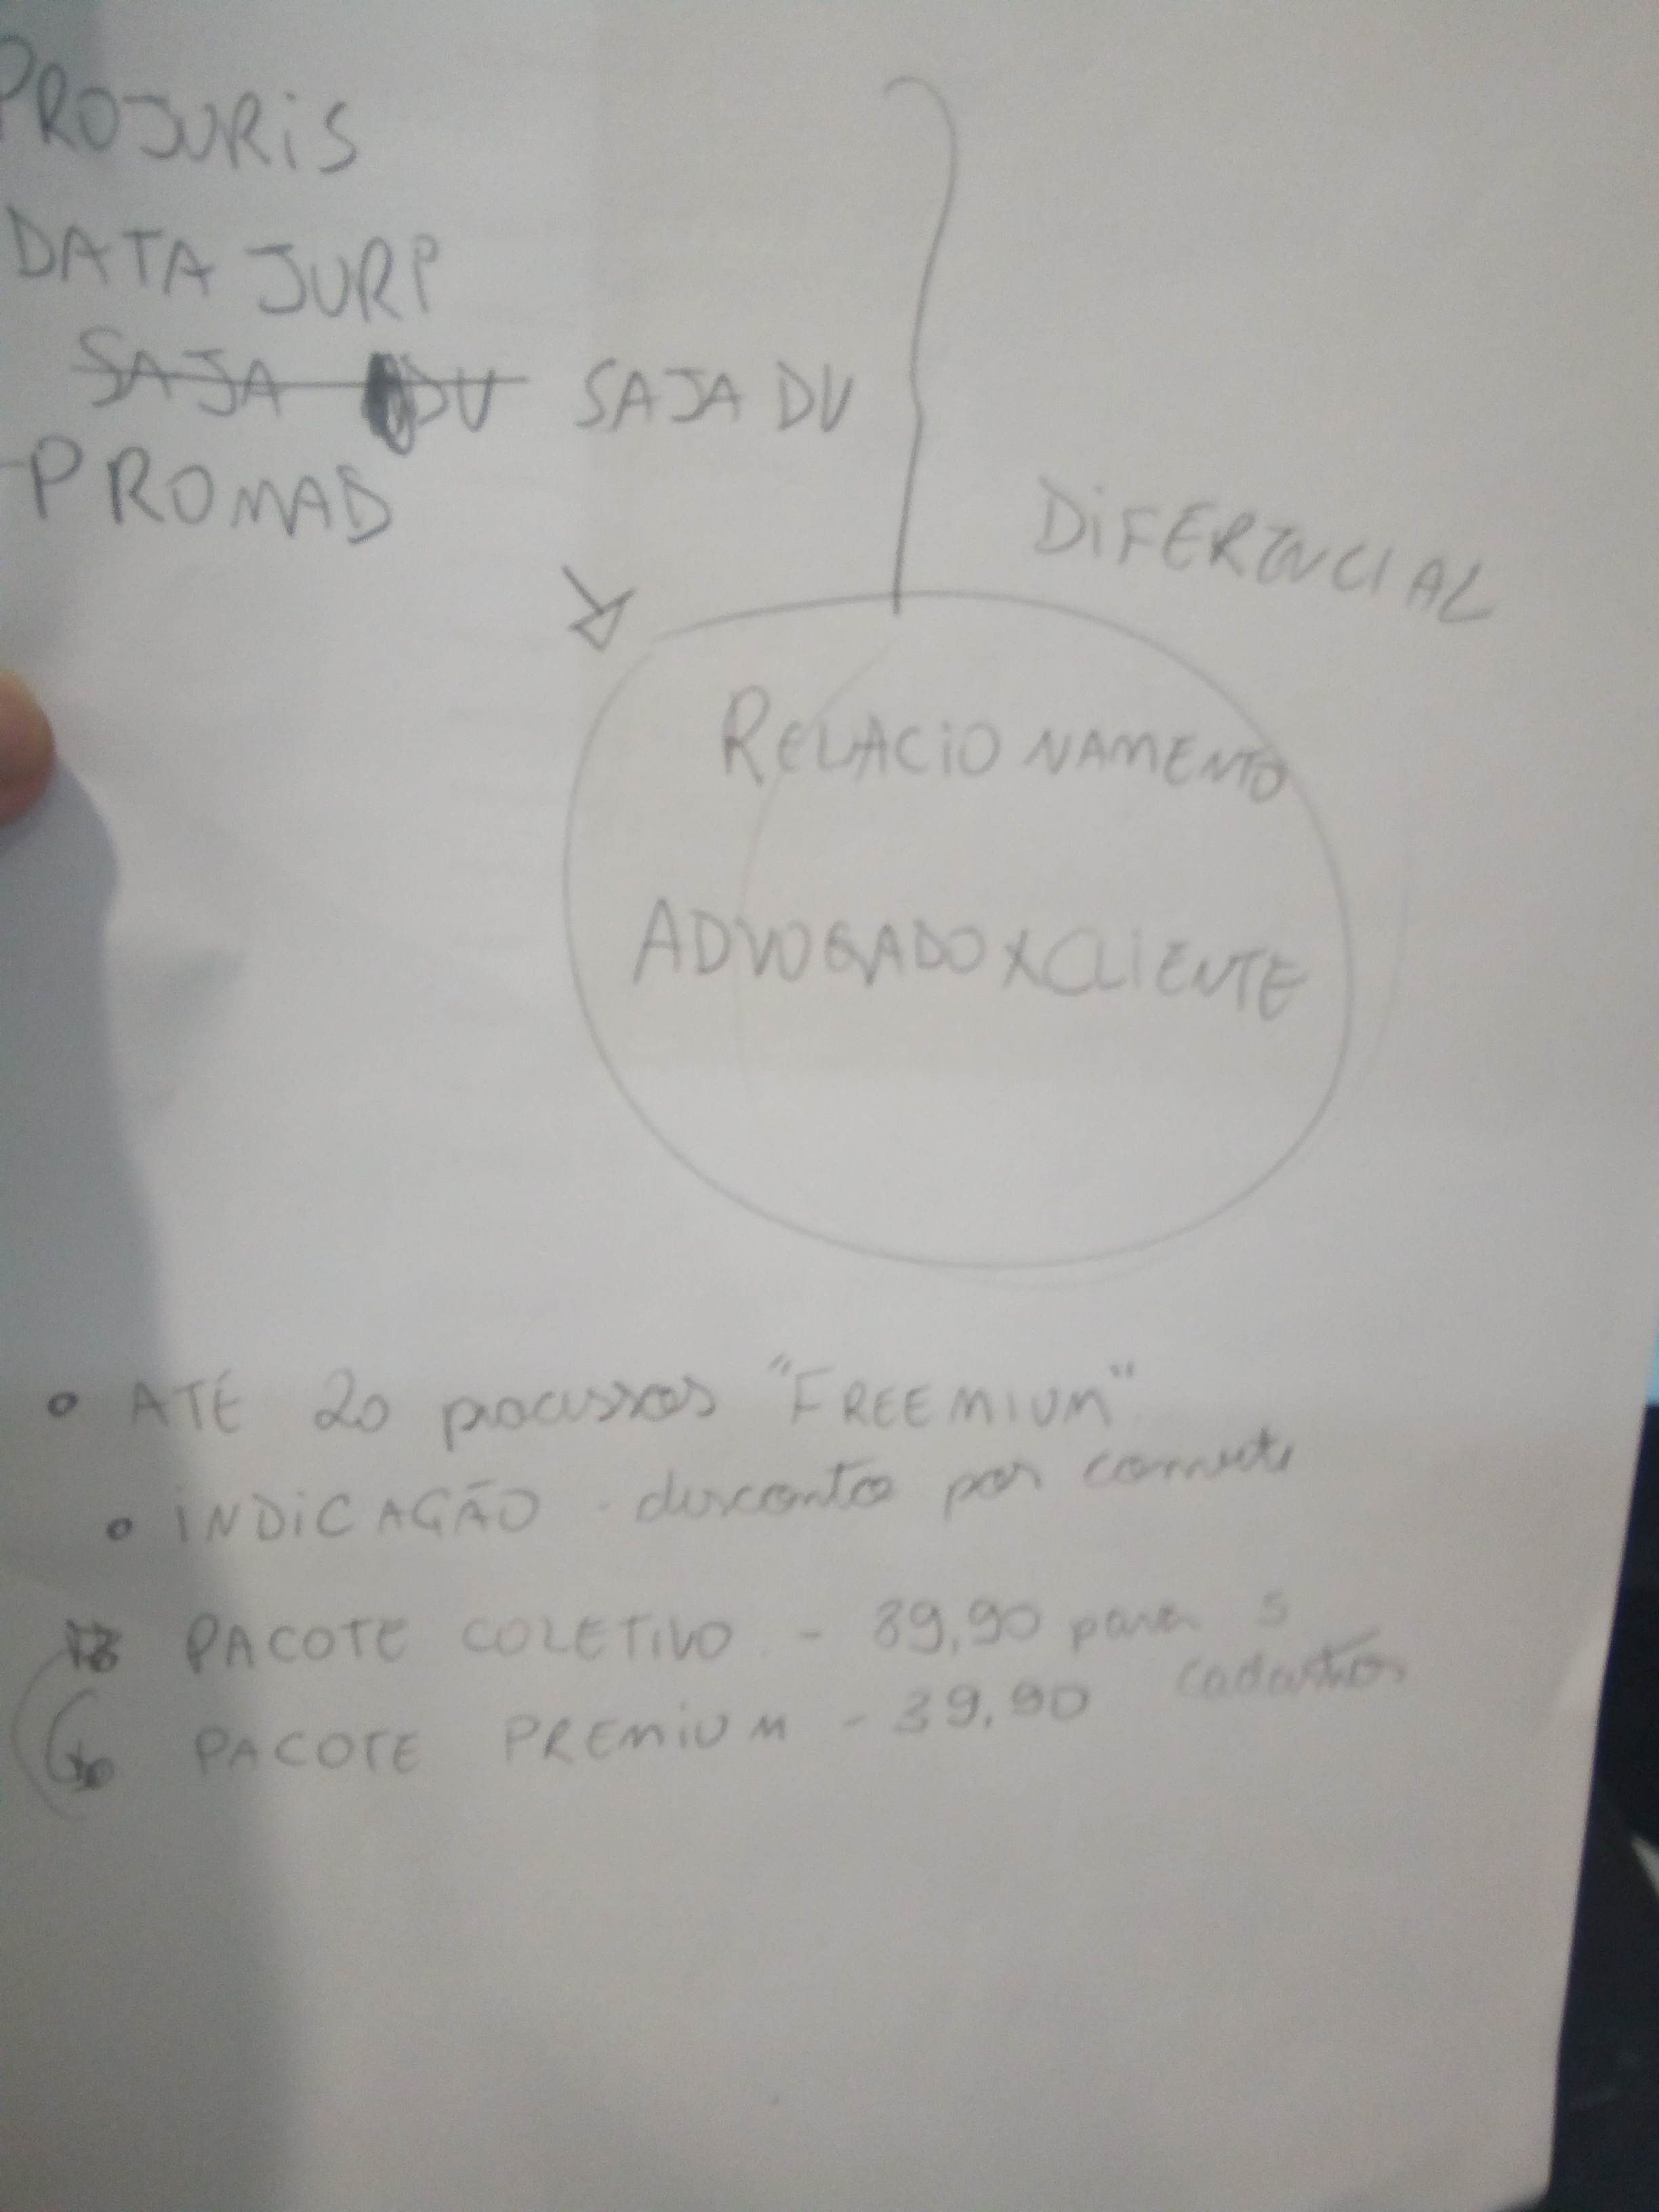 PROJURIS
DATA JURP
SAJA DV SAJA DV
PROMAD
DIFERENCIAL
RELACIONAMENTO
ADVOGADO X CLIENTE
• ATÉ 20 processos "FREEMIUM"
• INDICAÇÃO - desconto por convite
PACOTE COLETIVO - 89,90 para 5
cadastros
PACOTE PREMIUM - 39,90